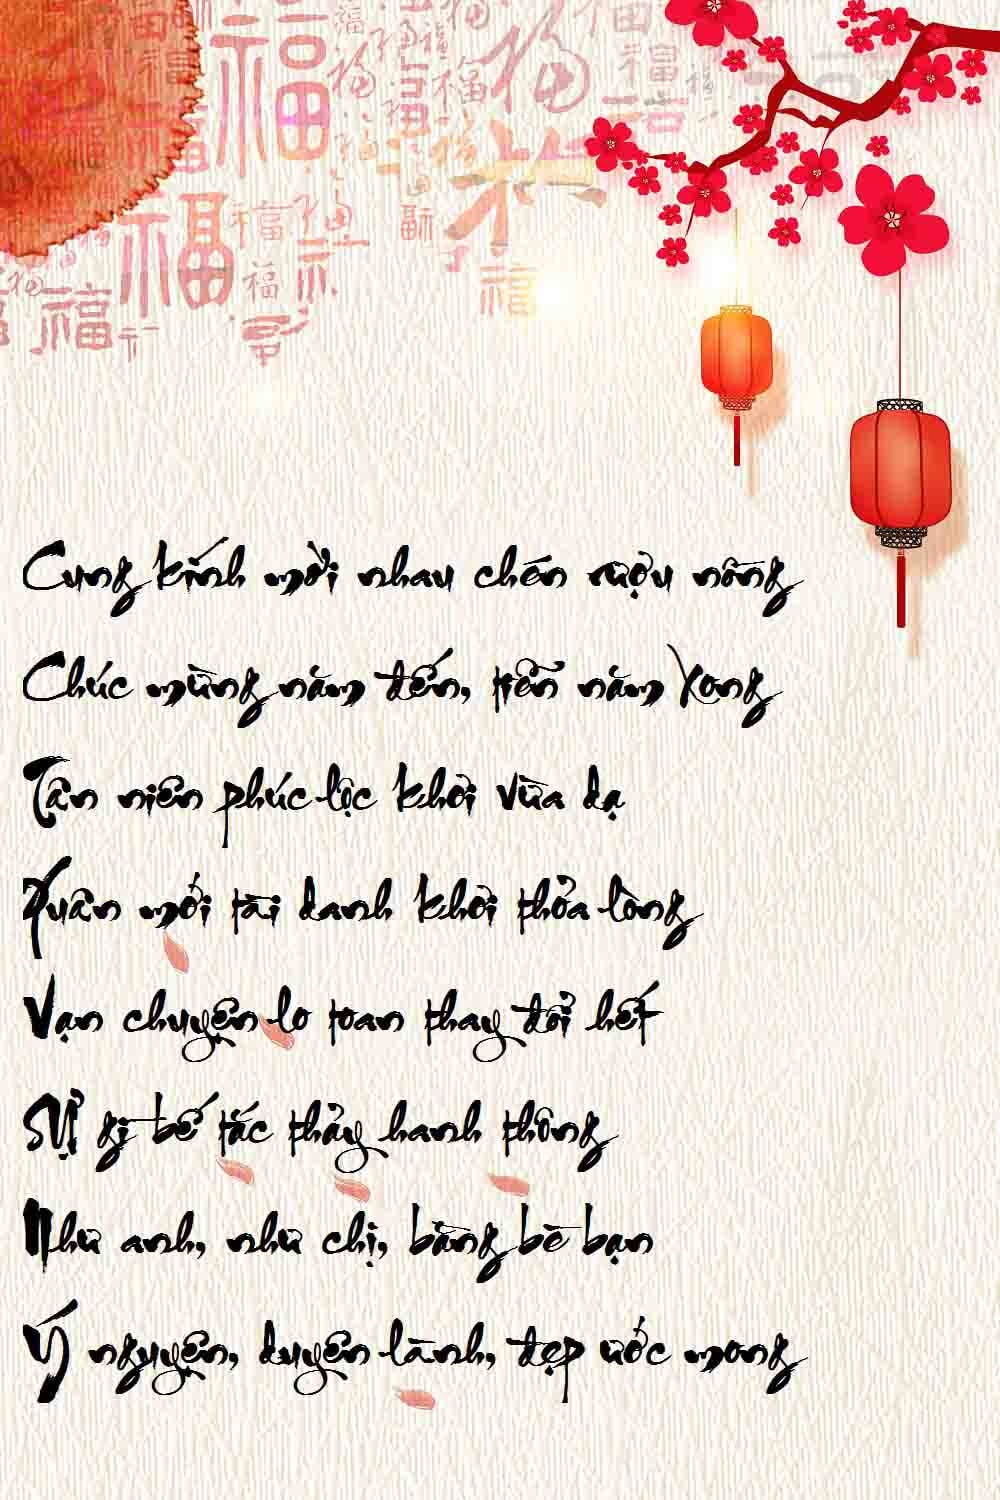 福
Cung kính mời nhau chén rượu nồng
Chúc mừng năm đến, tiễn năm xong
Tân niên phúc lộc khơi vừa dạ
Xuân mới tài danh khởi thỏa lòng
Vạn chuyện lo toan thay đổi hết
Sự gì bế tắc thảy hanh thông
Như anh, như chị, bằng bè bạn
Ý nguyện, duyên lành, đẹp ước mong